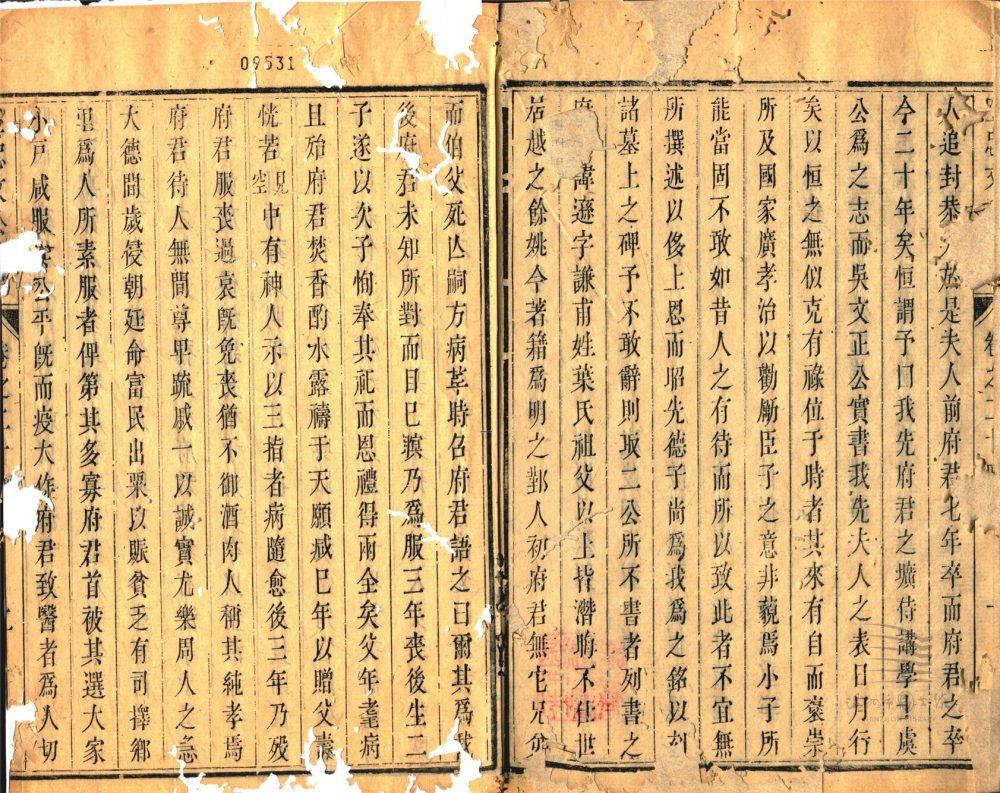 人追封恭　於是夫人前府君七年卒而府君之卒
今二十年矣恒謂予曰我先府君之壙侍講學士虞
公爲之志而吳文正公實書我先夫人之表日月行
矣以恒之無似克有祿位于時者其來有自而褒崇
所及國家廣孝治以勸勵臣子之意非藐焉小子所
能當固不敢如昔人之有待而所以致此者不宜無
所撰述以侈上恩而昭先德子尚爲我爲之銘以刻
諸墓上之碑予不敢辭則取二公所不書者列書之
府　諱遜字謙甫姓葉氏祖父以上皆潛晦不仕世
居越之餘姚今著籍爲明之鄞人初府君無它兄弟
而伯父死亡嗣方病革時召府君語之曰爾其爲我
後府君未知所對而目已瞑乃爲服三年喪後生二
子遂以次子恂奉其祀而恩禮得兩全矣父年耄病
且殆府君焚香酌水露禱于天願減己年以贈父壽
恍若見空中有神人示以三指者病隨愈後三年乃歿
府君服喪過哀既免喪猶不御酒肉人稱其純孝焉
府君待人無間尊卑疏戚一以誠實尤樂周人之急
大德間歲侵朝廷命富民出粟以賑貧乏有司擇鄉
里爲人所素服者俾第其多寡府君首被其選大家
小戶咸服其公平既而疫大作府君致醫者爲人切
09531